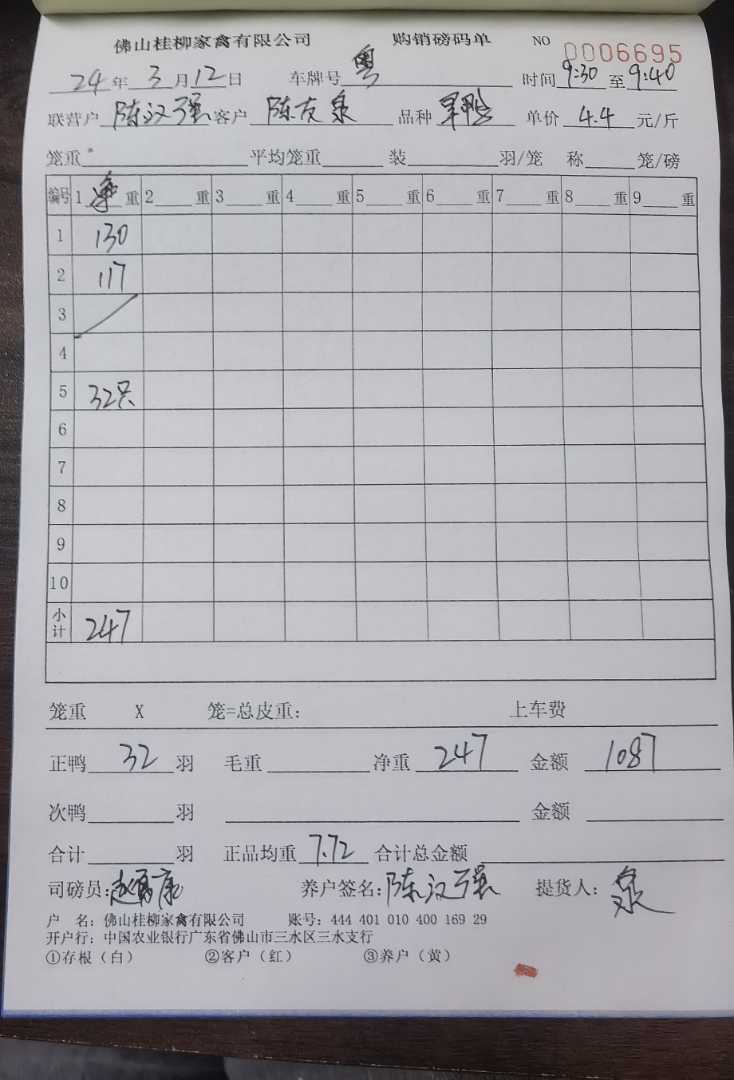 佛山桂柳家禽有限公司 购销磅码单 NO 0006695
24年3月12日 车牌号 粤 时间9:30至9:40
联营户 陈汉强 客户 陈友泉 品种 单价 4.4 元/斤
笼重 平均笼重 装 羽/笼 称 笼/磅
编号 1 净 重 2 重 3 重 4 重 5 重 6 重 7 重 8 重 9 重
1 130
2 117
3
4
5 32只
6
7
8
9
10
小计 247
笼重 X 笼=总皮重: 上车费
正鸭 32 羽 毛重 净重 247 金额 1087
次鸭 羽 金额
合计 羽 正品均重 7.72 合计总金额
司磅员: 养户签名: 陈汉强 提货人: 泉
户 名: 佛山桂柳家禽有限公司 账号: 444 401 010 400 169 29
开户行: 中国农业银行广东省佛山市三水区三水支行
①存根（白） ②客户（红） ③养户（黄）